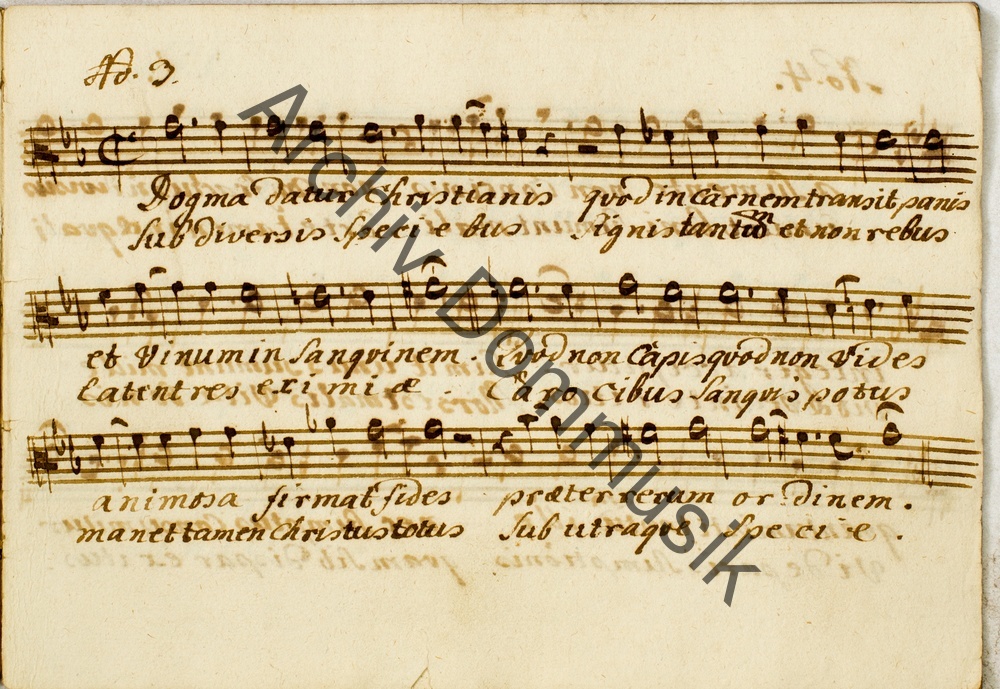 No. 3.
Dogma datur Christianis quod in Carnem transit panis
Sub diversis Specie bus Signis tantum et non rebus
et Vinum in Sanqvinem. Qvod non Capis qvod non Vides
Latent res eximiæ. Caro Cibus Sanqvis potus
animosa firmat fides præter rerum ordinem.
manet tamen Christus totus Sub utraqve Specie.
No. 4.
Archiv Dommusik